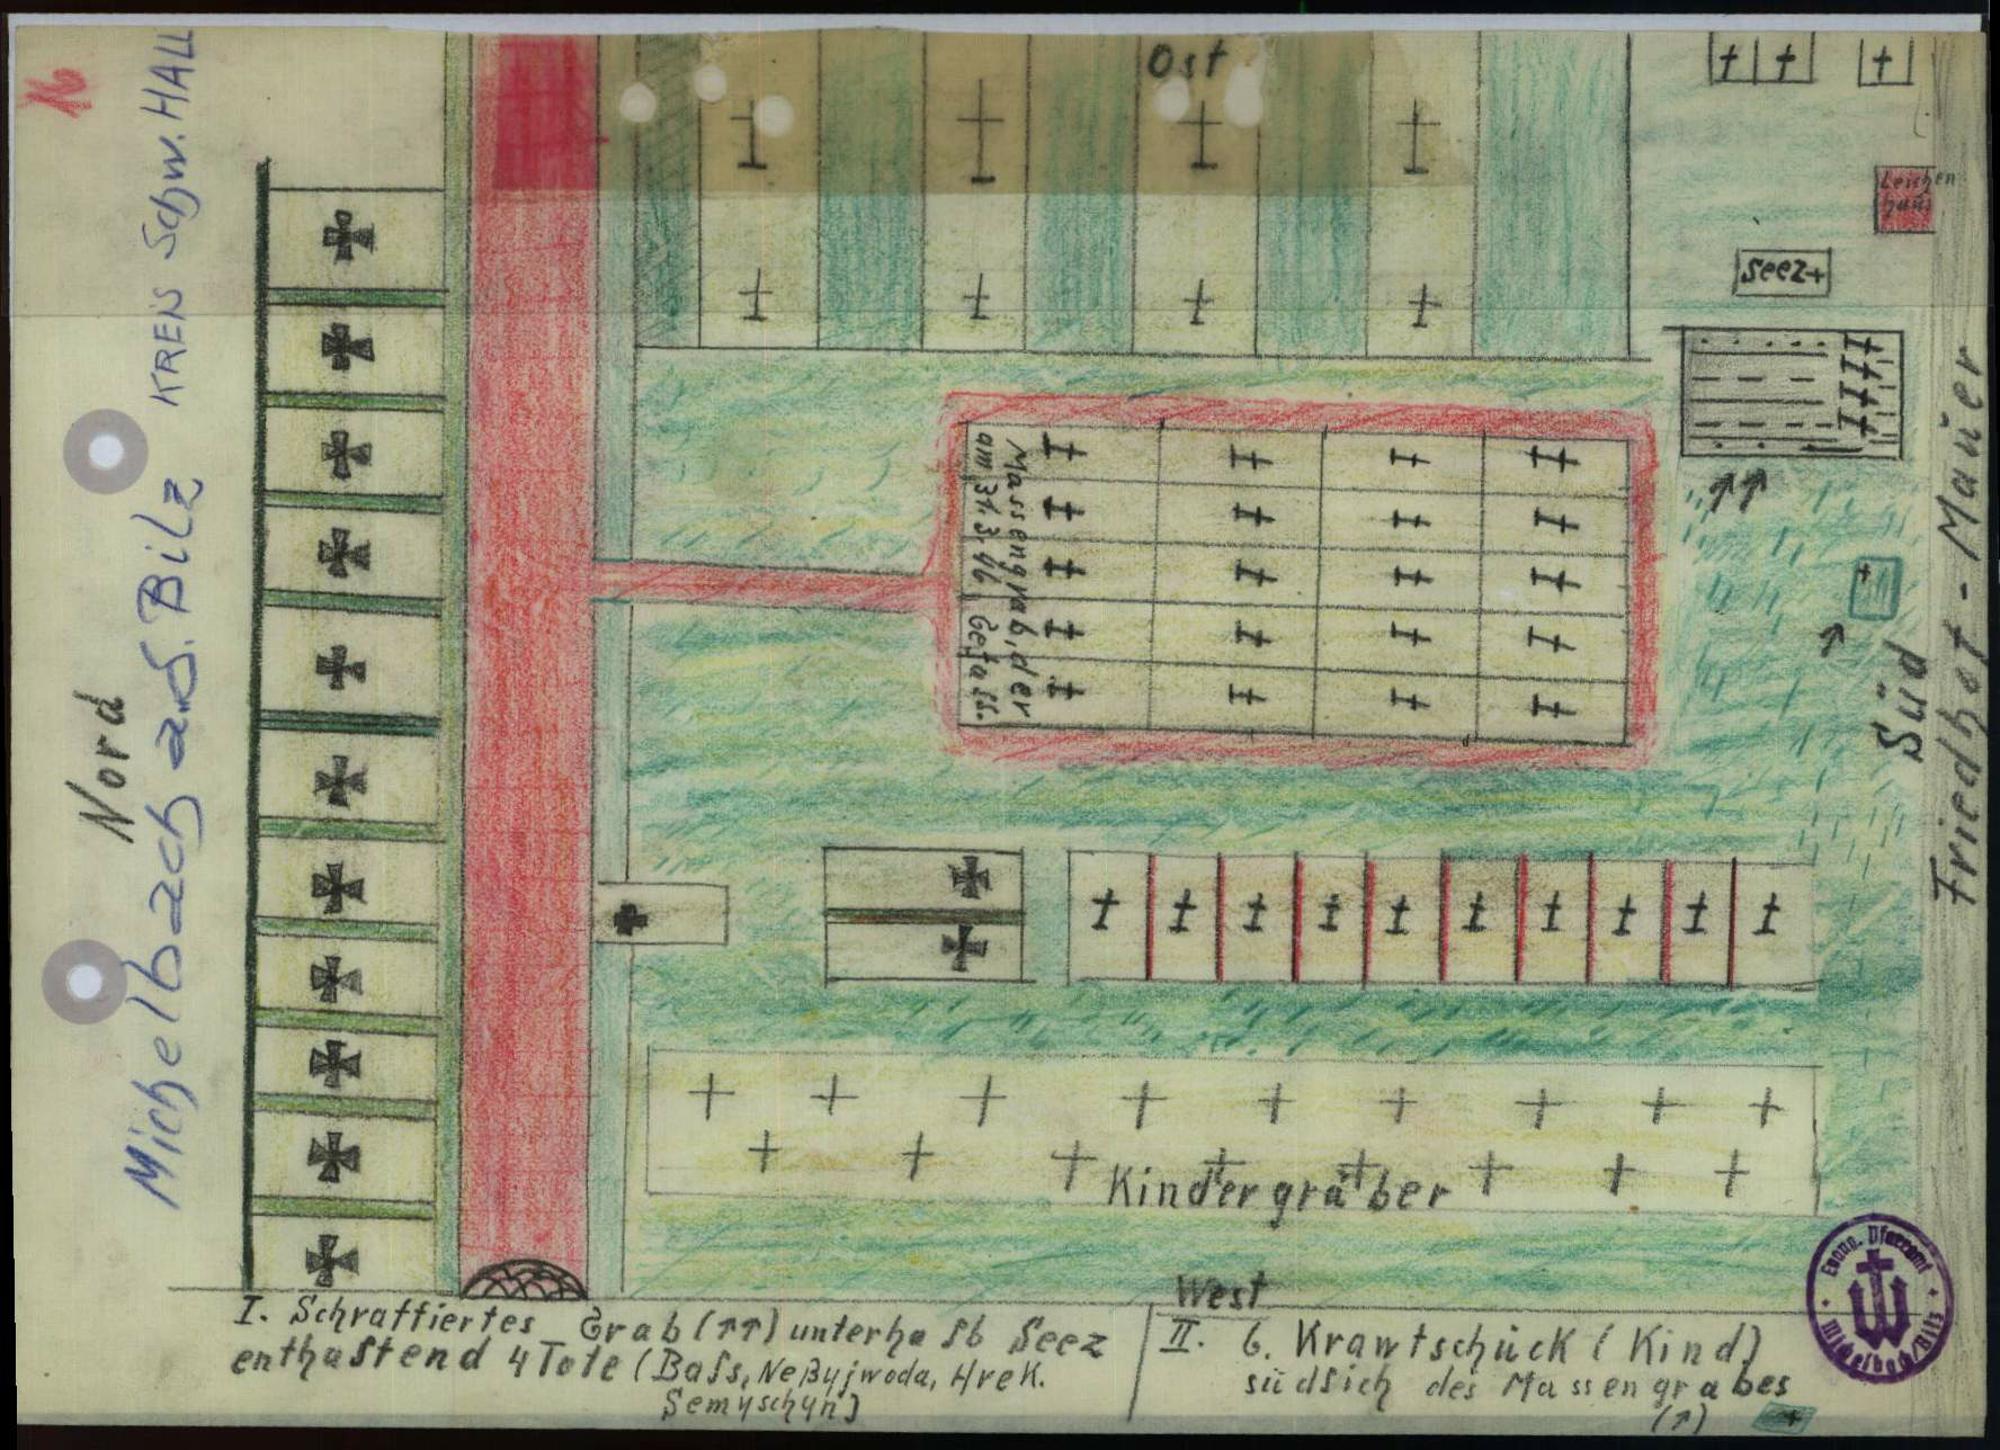 16
Michelbach a.d. Bilz KREIS Schw. HALL
Nord
Ost
Leichen
haus
Seez+
Massengrab, der
am 31.3.46 Gefall.
Süd
Friedhof - Mauer
Kindergräber
West
I. Schraffiertes Grab (↑↑) unterhalb Seez
enthaltend 4 Tote (Bals, Neßyjwoda, Hrek.
Semyschyn)
II. G. Krawtschück (Kind)
südlich des Massengrabes
(↑)
Evang. Pfarramt
Michelbach/Bilz